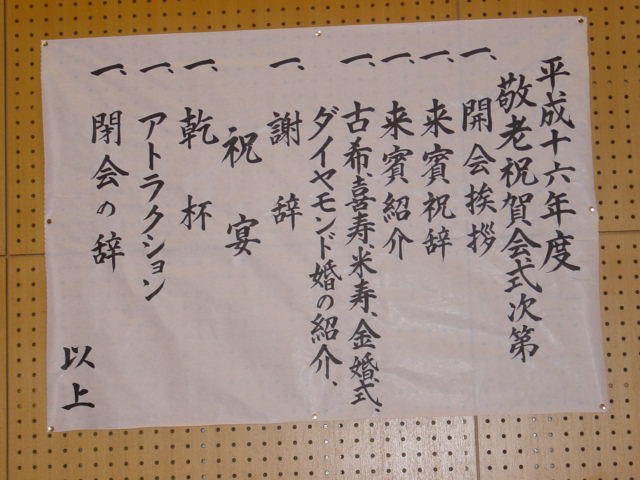 平成十六年度
敬老祝賀会式次第
一、開会挨拶
一、来賓祝辞
一、来賓紹介
一、古希、喜寿、米寿、金婚式、
ダイヤモンド婚の紹介、
一、謝辞
祝宴
一、乾杯
一、アトラクション
一、閉会の辞
以上